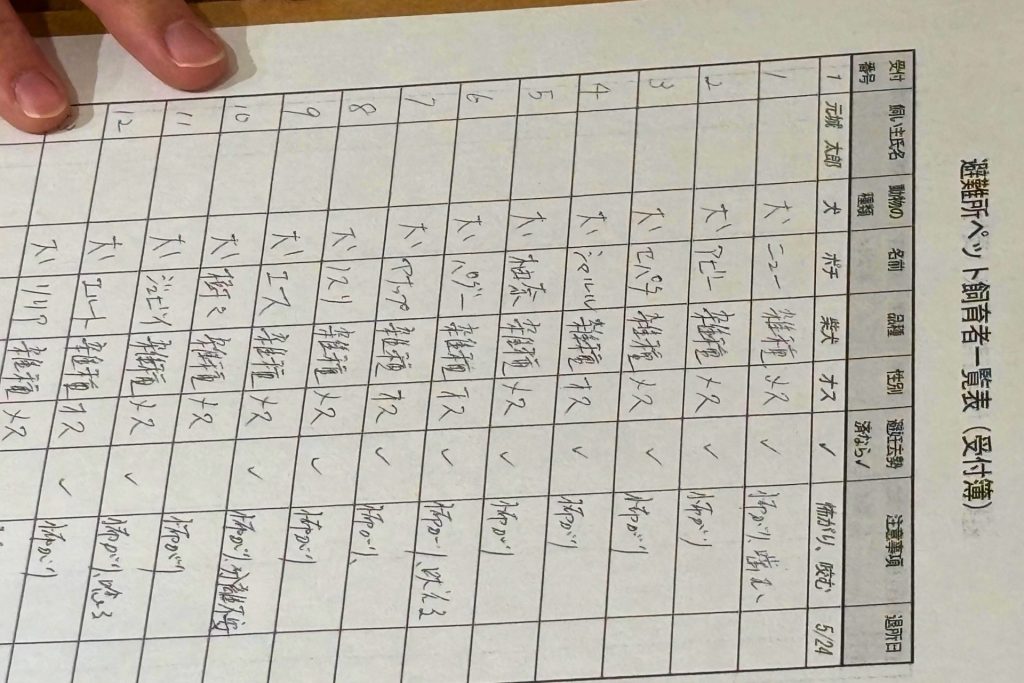 避難所ペット飼育者一覧表(受付簿)
受付番号 飼い主氏名 動物の種類 名前 品種 性別 避妊去勢済なら✓ 注意事項 退所日
1 元城 太郎 犬 ポチ 柴犬 オス ✓ 怖がり、咬む 5/24
1 犬 ニュー 雑種 メス ✓ 怖がり、噛む、
2 犬 アビー 雑種 メス ✓ 怖がり
3 犬 雑種 メス ✓ 怖がり
4 犬 シャルル 雑種 オス ✓ 怖がり
5 犬 柚奈 雑種 メス ✓ 怖がり
6 犬 雑種 オス ✓ 怖がり、吠える
7 犬 雑種 オス ✓ 怖がり、
8 犬 ノスリ 雑種 メス ✓ 怖がり
9 犬 エース 雑種 メス ✓ 怖がり、分離不安
10 犬 樹々 雑種 メス 怖がり
11 犬 雑種 メス ✓ 怖がり、吠える
12 犬 雑種 オス ✓ 怖がり
犬 リリア 雑種 メス